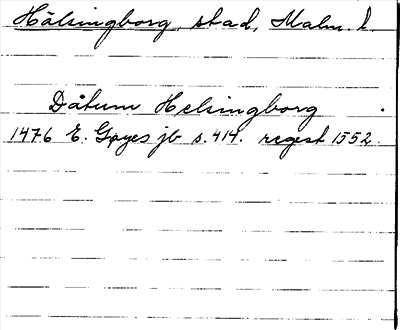 Hälsingborg, stad, Malm. l.
Dåtum Helsingborg
1476 E. Gøyes jb s. 414. regest 1552.